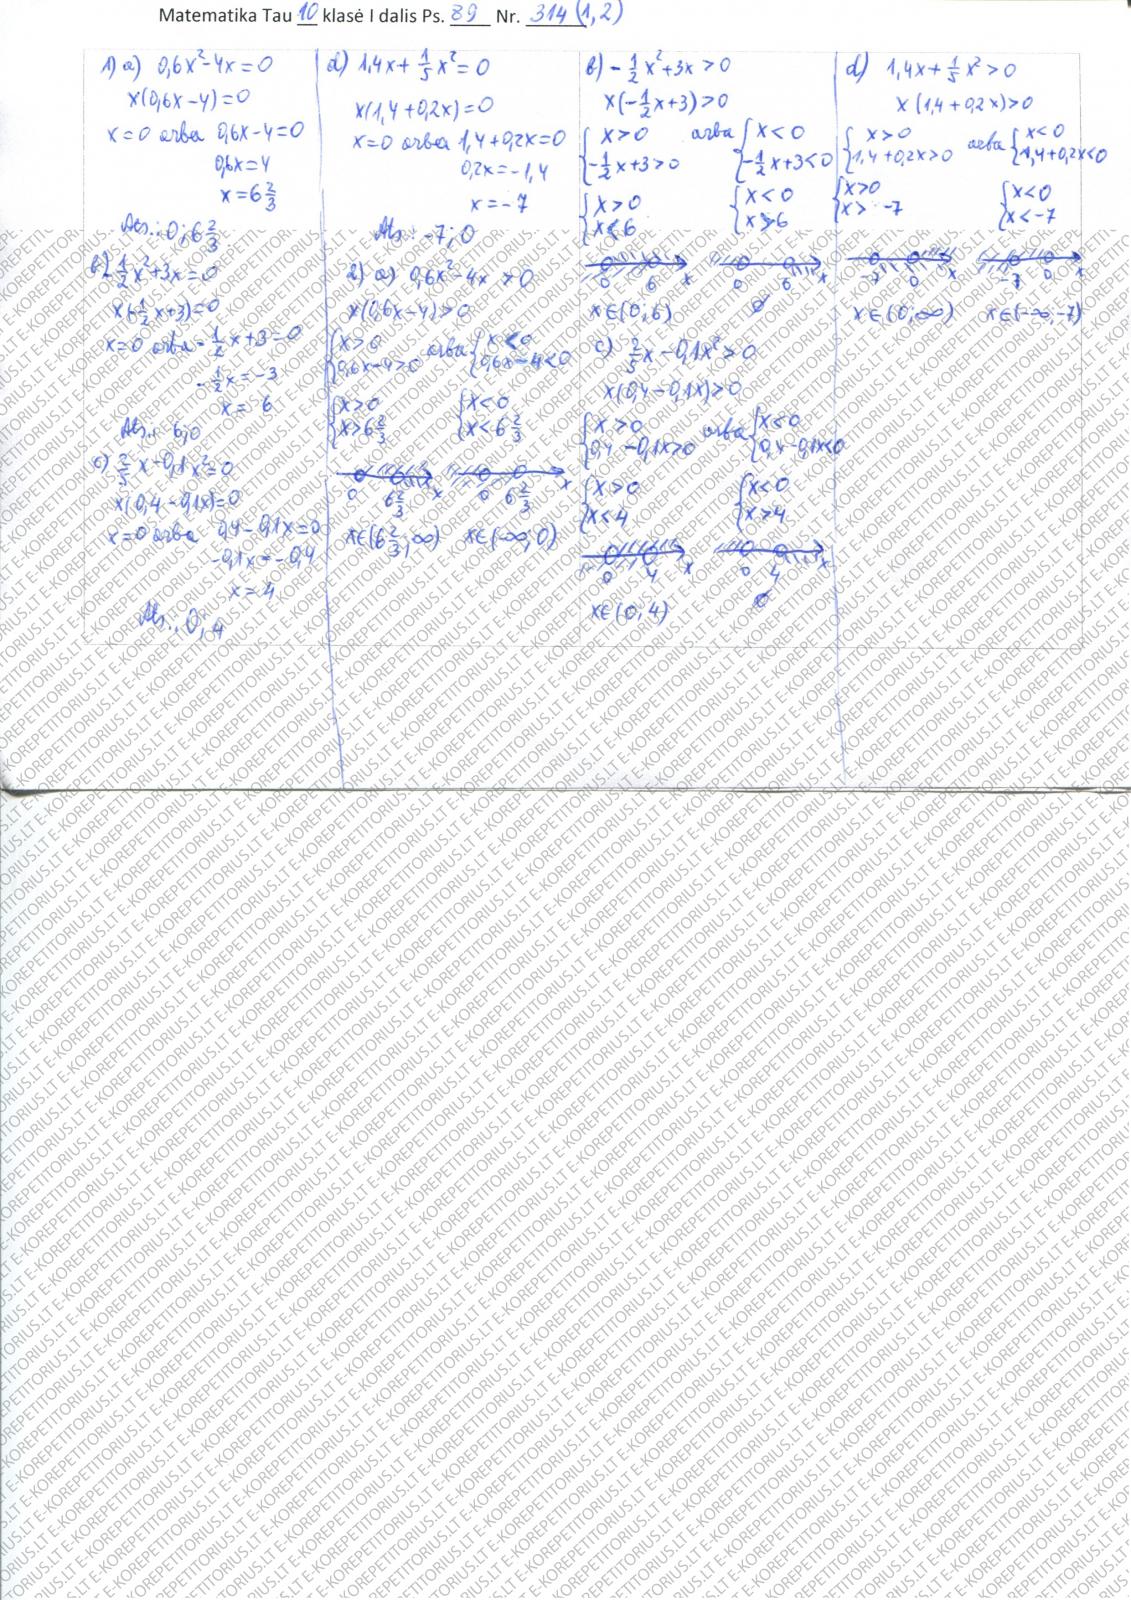 Matematika Tau 10 klasė I dalis Ps. 89 Nr. 314 (1,2)
1) a) 0,6x²-4x=0
x(0,6x-4)=0
x=0 arba 0,6x-4=0
0,6x=4
x=6 2/3
Ats.: 0; 6 2/3
b) -1/2x²+3x=0
x(-1/2x+3)=0
x=0 arba -1/2x+3=0
-1/2x=-3
x=6
Ats.: 6; 0
c) 2/5x-0,1x²=0
x(0,4-0,1x)=0
x=0 arba 0,4-0,1x=0
-0,1x=-0,4
x=4
Ats.: 0; 4
d) 1,4x+1/5x²=0
x(1,4+0,2x)=0
x=0 arba 1,4+0,2x=0
0,2x=-1,4
x=-7
Ats.: -7; 0
2) a) 0,6x²-4x>0
x(0,6x-4)>0
{x>0 arba {x<0
0,6x-4>0 0,6x-4<0
{x>0 {x<0
x>6 2/3 x<6 2/3
0 6 2/3 x 0 6 2/3 x
x∈(6 2/3; ∞) x∈(-∞; 0)
b) -1/2x²+3x>0
x(-1/2x+3)>0
{x>0 arba {x<0
-1/2x+3>0 -1/2x+3<0
{x>0 {x<0
x<6 x>6
0 6 x 0 6 x
x∈(0; 6) ∅
c) 2/5x-0,1x²>0
x(0,4-0,1x)>0
{x>0 arba {x<0
0,4-0,1x>0 0,4-0,1x<0
{x>0 {x<0
x<4 x>4
0 4 x 0 4 x
x∈(0; 4) ∅
d) 1,4x+1/5x²>0
x(1,4+0,2x)>0
{x>0 arba {x<0
1,4+0,2x>0 1,4+0,2x<0
{x>0 {x<0
x>-7 x<-7
-7 0 x -7 0 x
x∈(0; ∞) x∈(-∞; -7)
E-KOREPETITORIUS.LT